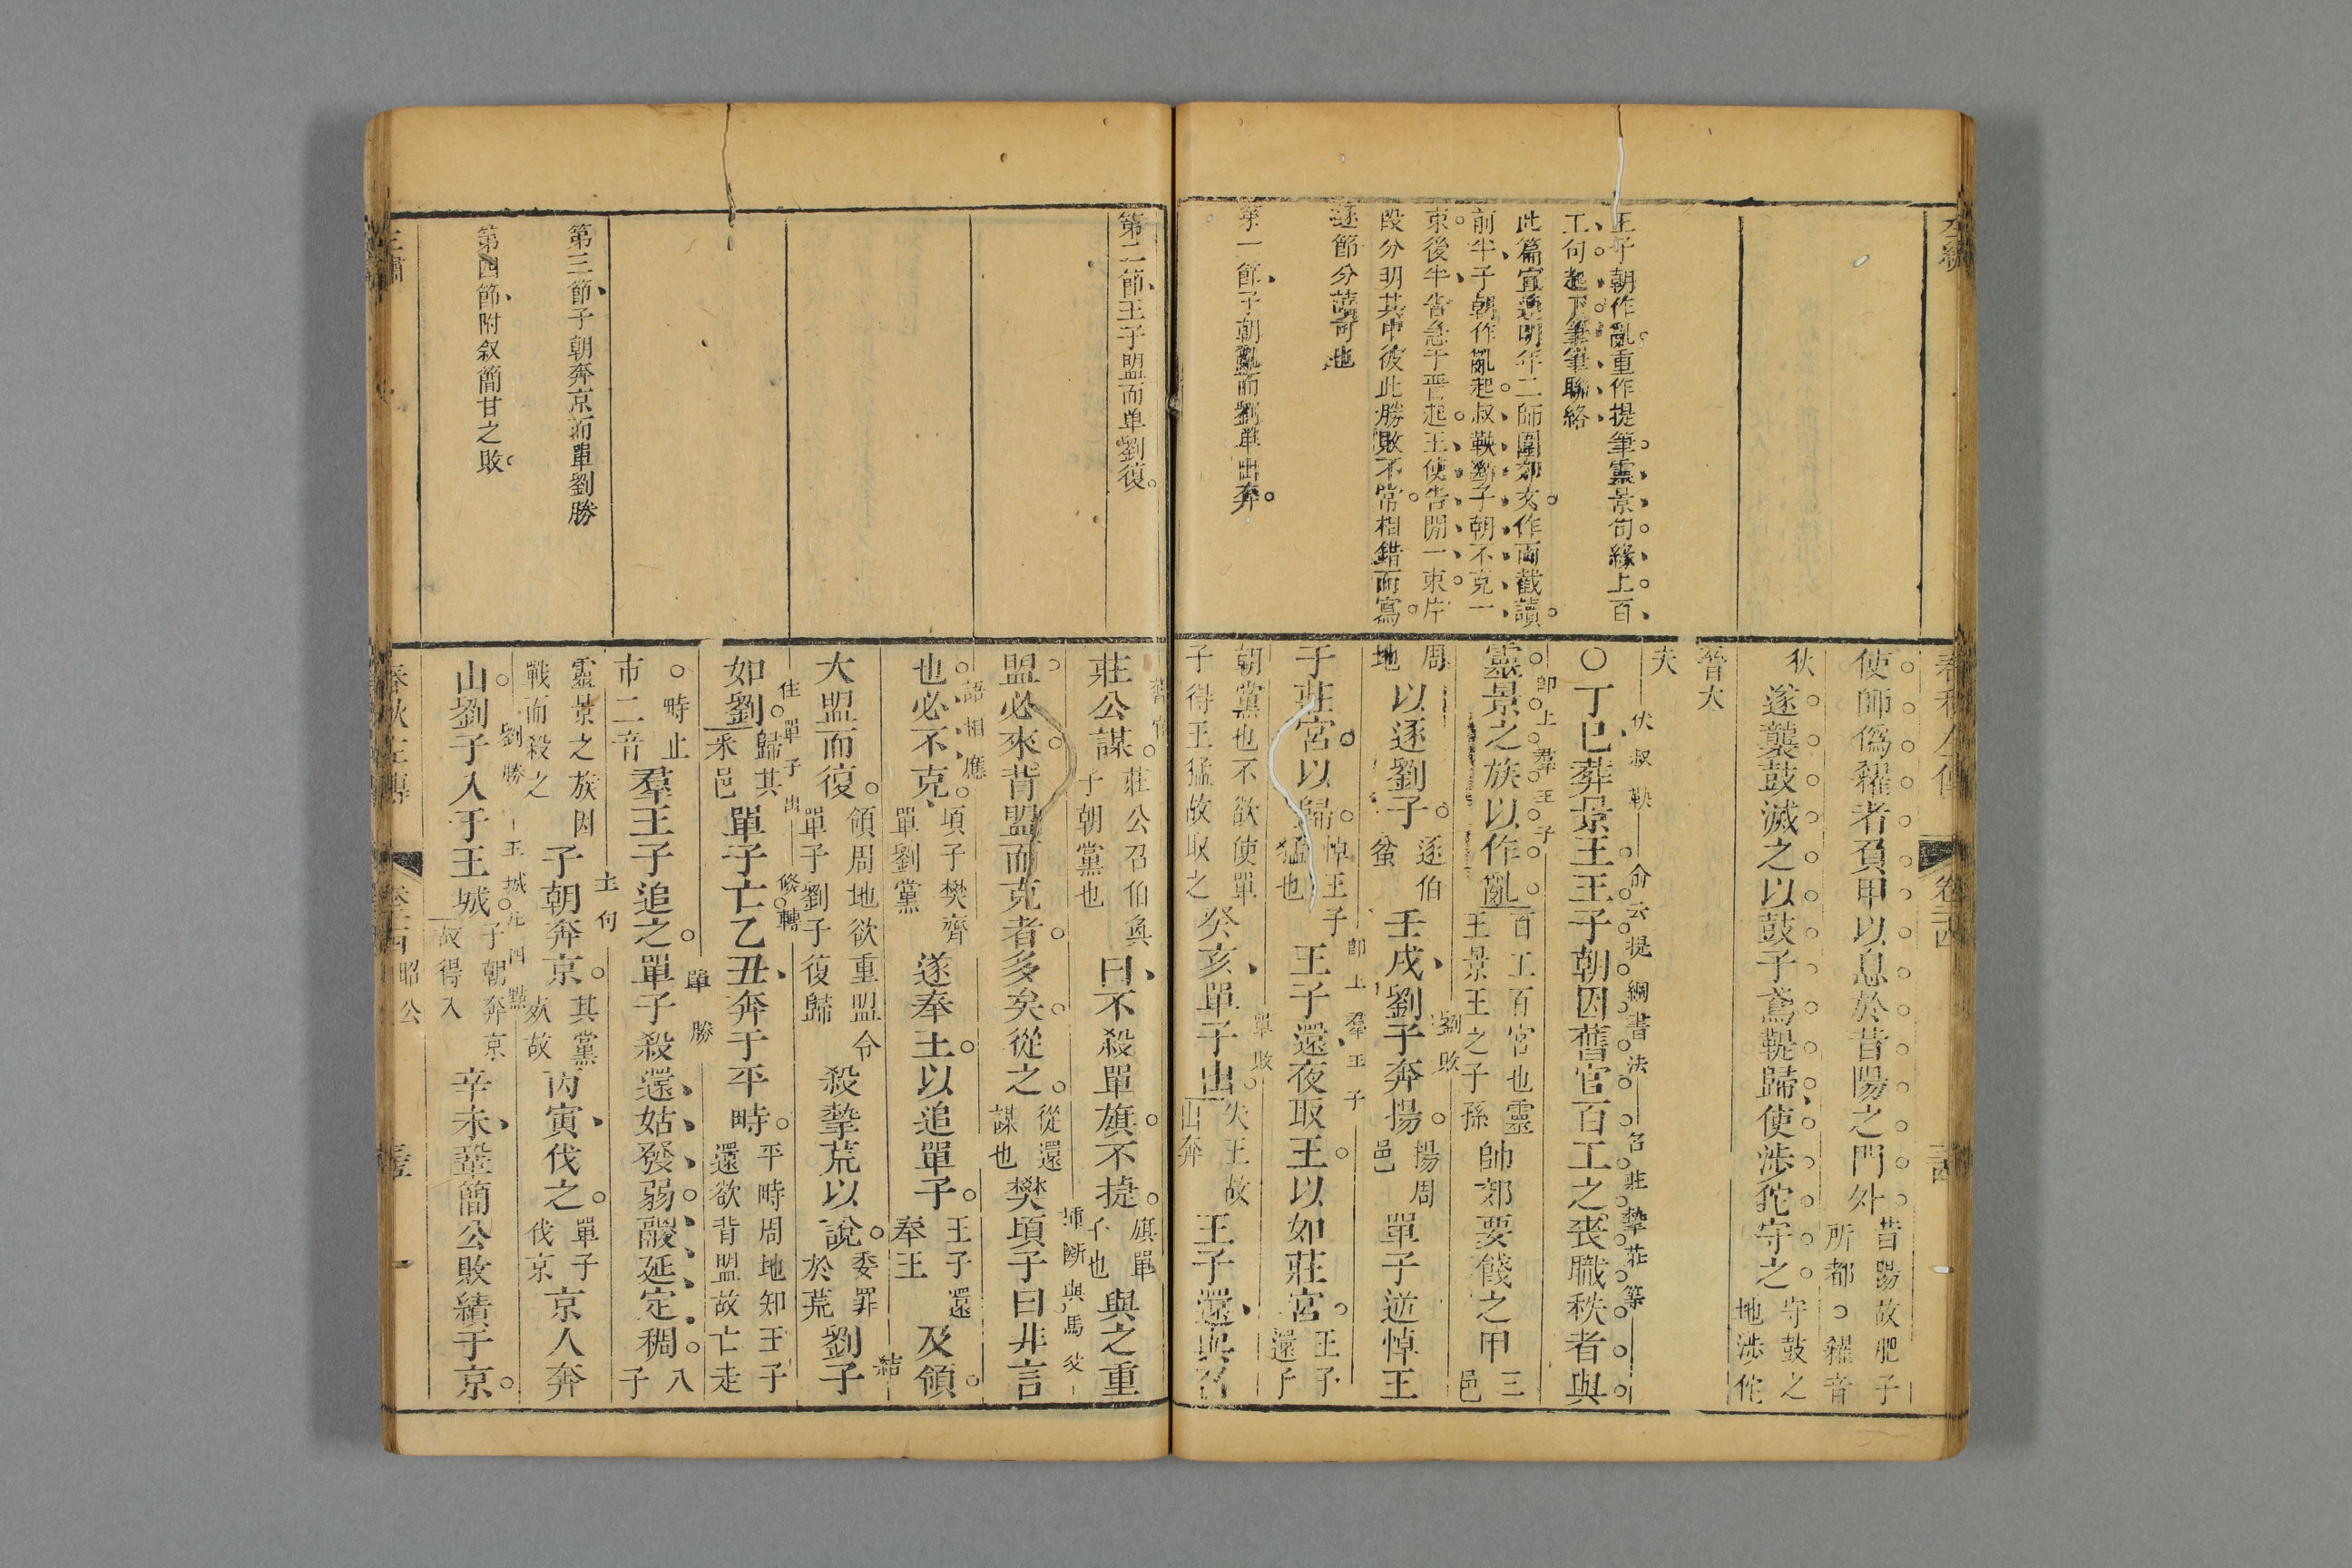 王子朝作亂重作提筆靈景句緣上百
工句起下筆筆聯絡
此篇宜選明年二師圍郊爻作兩截讀
前半子朝作亂起叔鞅斷子朝不克一
束後半告急于晋起王使告閒一束片
段分明其中彼此勝敗不常相錯而寫
逐節分讀可也
第一節子朝亂而劉單出奔
使師偽糴者負甲以息於昔陽之門外昔陽故肥子
所都○糴音
狄遂襲鼓滅之以鼓子鳶鞮歸使涉佗守之守鼓之
地涉佗
晉大
夫
伏叔鞅 俞云提綱書法 召莊摯荒等
○丁巳葬景王王子朝因舊官百工之喪職秩者與
即上羣王子
靈景之族以作亂百工百官也靈
王景王之子孫帥郊要餞之甲三
邑
周
地以逐劉子逐伯
蚠壬戌劉子奔揚揚周
邑單子逆悼王
劉敗
于莊宮以歸悼王子
猛也王子還夜取王以如莊宮王子
還子
即上羣王子
朝黨也不欲使單
子得王猛故取之癸亥單子出失王故
出奔王子還與召
單敗
第二節王子盟而单劉復
莊公謀莊公召伯奐
子朝黨也曰不殺單旗不捷旗單
子也與之重
盟必來背盟而克者多矣從之從還
謀也樊頃子曰非言
也必不克頃子樊齊
單劉黨遂奉王以追單子王子還
奉王及領
語相應
大盟而復領周地欲重盟令
單子劉子復歸殺摯荒以說委罪
於荒劉子
結
如劉歸其
采邑單子亡乙丑奔于平畤平畤周地知王子
還欲背盟故亡走
住單子出 修轉
○畤止
市二音羣王子追之單子殺還姑發弱鬷延定稠八
子
單勝
靈景之族因
戰而殺之子朝奔京其黨
死故丙寅伐之單子
伐京京人奔
主句
山劉子入于王城子朝奔京
故得入辛未鞏簡公敗績于京
劉勝 王城
第三節子朝奔京而單劉勝
第四節附叙簡甘之敗
春秋左傳
昭公